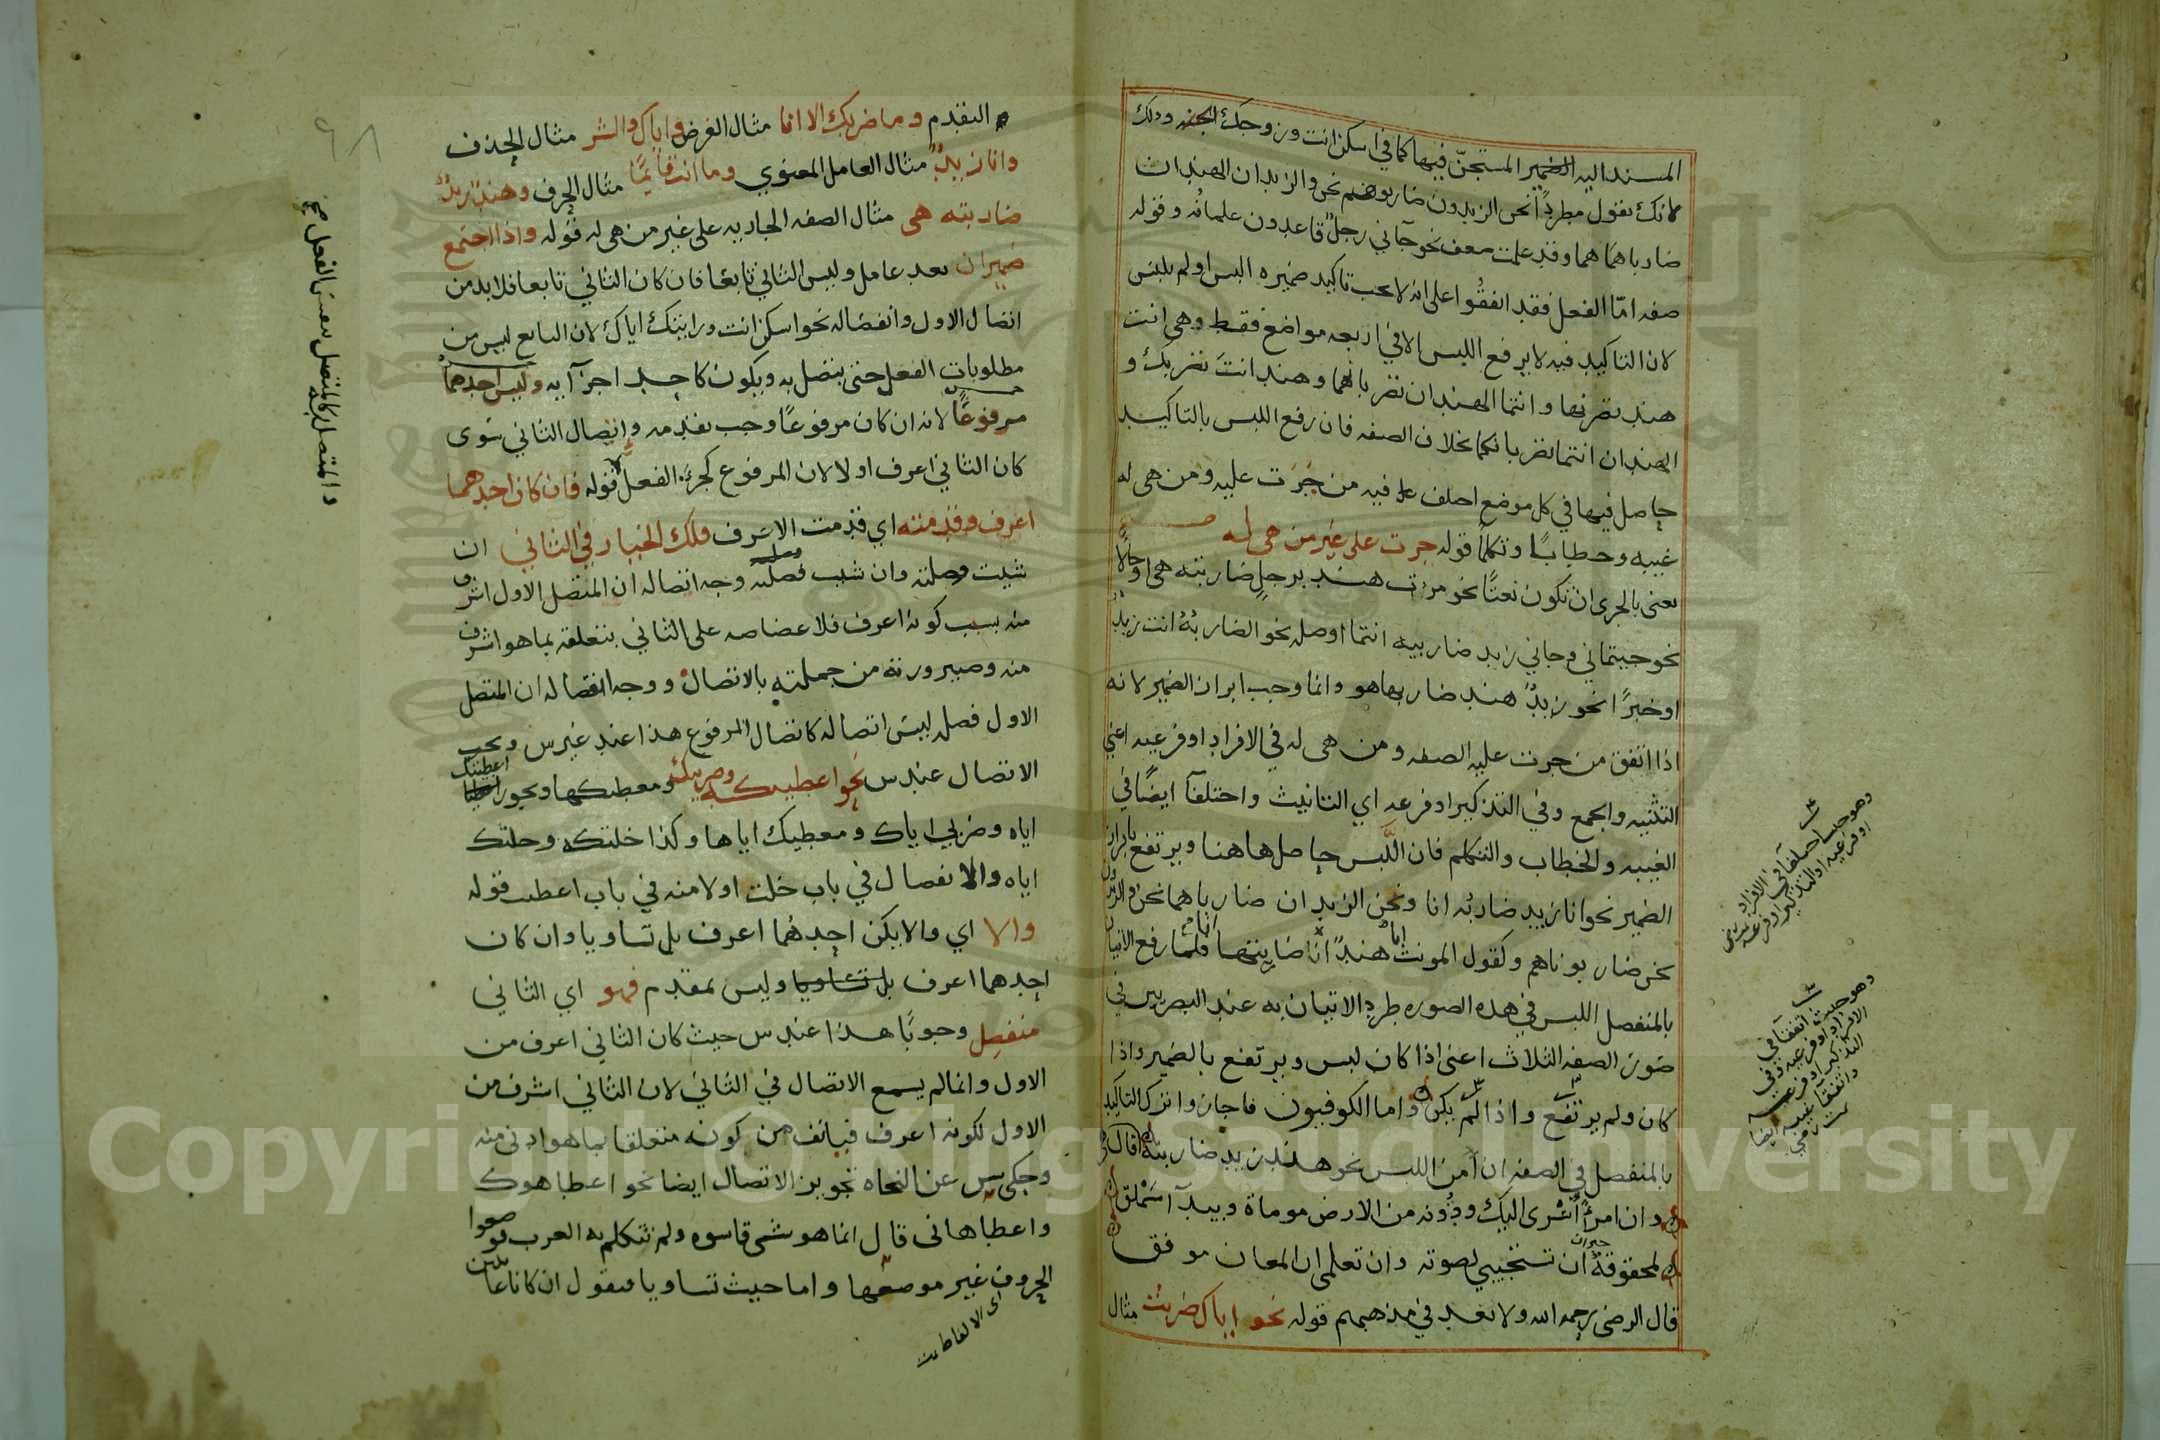 المسند اليه الضمير المستجنّ فيها كما في اسكن انت وزوجك الجنه وذلك
لانك تقول مطردًا نحن الزيدون ضاربوهم نحن والزيدان الهندان
ضارباهما هما وقد علمت ضعف نحو جآني رجلٌ قاعدون غلمانُه وقوله
صفه امّا الفعل فقد اتفقُوا على انه لا يجب تاكيد ضميره البس او لم يلبس
لان التاكيد فيه لا يرفع اللبس الا في اربعه مواضع فقط وهي انت
هند تضربها وانتما الهندان تضربانهما وهند انت تضربك و
الهندان انتما تضربانكما بخلاف الصفه فان رفع اللبس بالتاكيد
حاصل فيها في كل موضع اختلف فيه من جَرَت عليه ومن هي له
غيبه وخطابًا وتكلمًا قوله جرت على غير من هي له
يعني بالجري ان تكون نعتًا نحو مررت هند برجلٍ ضاربته هي او حالًا
نحو جيتماني وجاني زيد ضاربيه انتما او صله نحو الضاربهُ انت زيدٌ
او خبرًا نحو زيدٌ هند ضاربها هو وانما وجب ابراز الضمير لانه
اذا اتفق من جرت عليه الصفه ومن هي له في الافراد او فرعيه اعني
التثنيه والجمع وفي التذكير او فرعه اي التانيث واختلفا ايضًا في
الغيبه والخطاب والتكلم فان اللَّبس حاصل هاهنا ويرتفع بابراز
الضمير نحو انا زيد ضاربُه انا ونحن الزيدان ضارباهما نحن والزيدون
نحن ضاربوناهم وكقول المونث هندٌ انا ضاربتها انا فلما رفع الاتيان
بالمنفصل اللبس في هذه الصوره طرد الاتيان به عند البصريين في
صَوَر الصفه الثلاث اعني اذا كان لبس ويرتفع بالضمير واذا
كان ولم يرتفع واذا لم يكن واما الكوفيون فاجازوا ترك التاكيد
بالمنفصل في الصفه ان اُمن اللبس نحو هند زيد ضاربته قال
وان امرءًا اَسْرى اليك ودُونه من الارض موماة وبيدآ سَمْلق
لمحقوقةٌ ان تستجيبي لصوته وان تعلمي ان المعان موفق
قال الرضي رحمه الله ولا نعد في مذهبهم قوله نحو اياك ضربتُ مثال
وهو حيث اختلفا في الافراد
او فرعيه او التذكير او فرعه
وهو حيث اتفقا في
الافراد او فرعيه وفي
التذكير او فرعه
واتفقا غيبه ايضا
التقدم وما ضربك الا انا مثال الغرض واياك والشر مثال الحذف
وانا زيدٌ مثال العامل المعنوي وما انت قائمًا مثال الحرف وهند زيدٌ
ضاربته هي مثال الصفه الجاريه على غير من هي له قوله واذا اجتمع
ضميران بعد عامل وليس الثاني تابعًا فان كان الثاني تابعا فلا بد من
اتصال الاول وانفصاله نحو اسكن انت ورايتك اياك لان التابع ليس من
مطلوبات الفعل حتى يتصل به ويكون كاحد اجزآيه وليس احدهما
مرفوعًا لانه ان كان مرفوعًا وجب تقدمه واتصال الثاني سَوى
كان الثاني اعرف او لا لان المرفوع كجزء الفعل قوله فان كان احدهما
اعرف وقدمته اي قدمت الاعرف فلك الخيار في الثاني ان
شيت وصلته وان شيت فصلته وجه اتصاله ان المتصل الاول اشرف
منه بسبب كونه اعرف فلا غضاضه على الثاني بتعلقه بما هو اشرف
منه وصيرورته من جملته بالاتصال ووجه انفصاله ان المتصل
الاول فصل ليس اتصاله كاتصال المرفوع هذا عند غير س ويجب
الاتصال عند س نحو اعطيتكه وضربيك ومعطيكها ويجوز اعطيتك
اياه وضربي اياك ومعطيك اياها وكذا خلتكه وخلتك
اياه والانفصال في باب خلت اولا منه في باب اعطيت قوله
والا اي والا يكن احدهما اعرف بل تساويا وان كان
احدهما اعرف بل تساويا وليس بمقدم فهو اي الثاني
منفصل وجوبًا هذا عند س حيث كان الثاني اعرف من
الاول وانما لم يسمع الاتصال في الثاني لان الثاني اشرف من
الاول لكونه اعرف فيانف من كونه متعلقا بما هو ادنى منه
وحكى س عن النحاه تجويز الاتصال ايضا نحو اعطاهوك
واعطاهاني قال انما هو شي قاسوه ولم تتكلم به العرب فوضعوا
الحروف غير موضعها واما حيث تساويا فنقول ان كانا غائبين
اي الالفاظ
والمتصل كالمتصل بنفس الفعل
Copyright © King Saud University